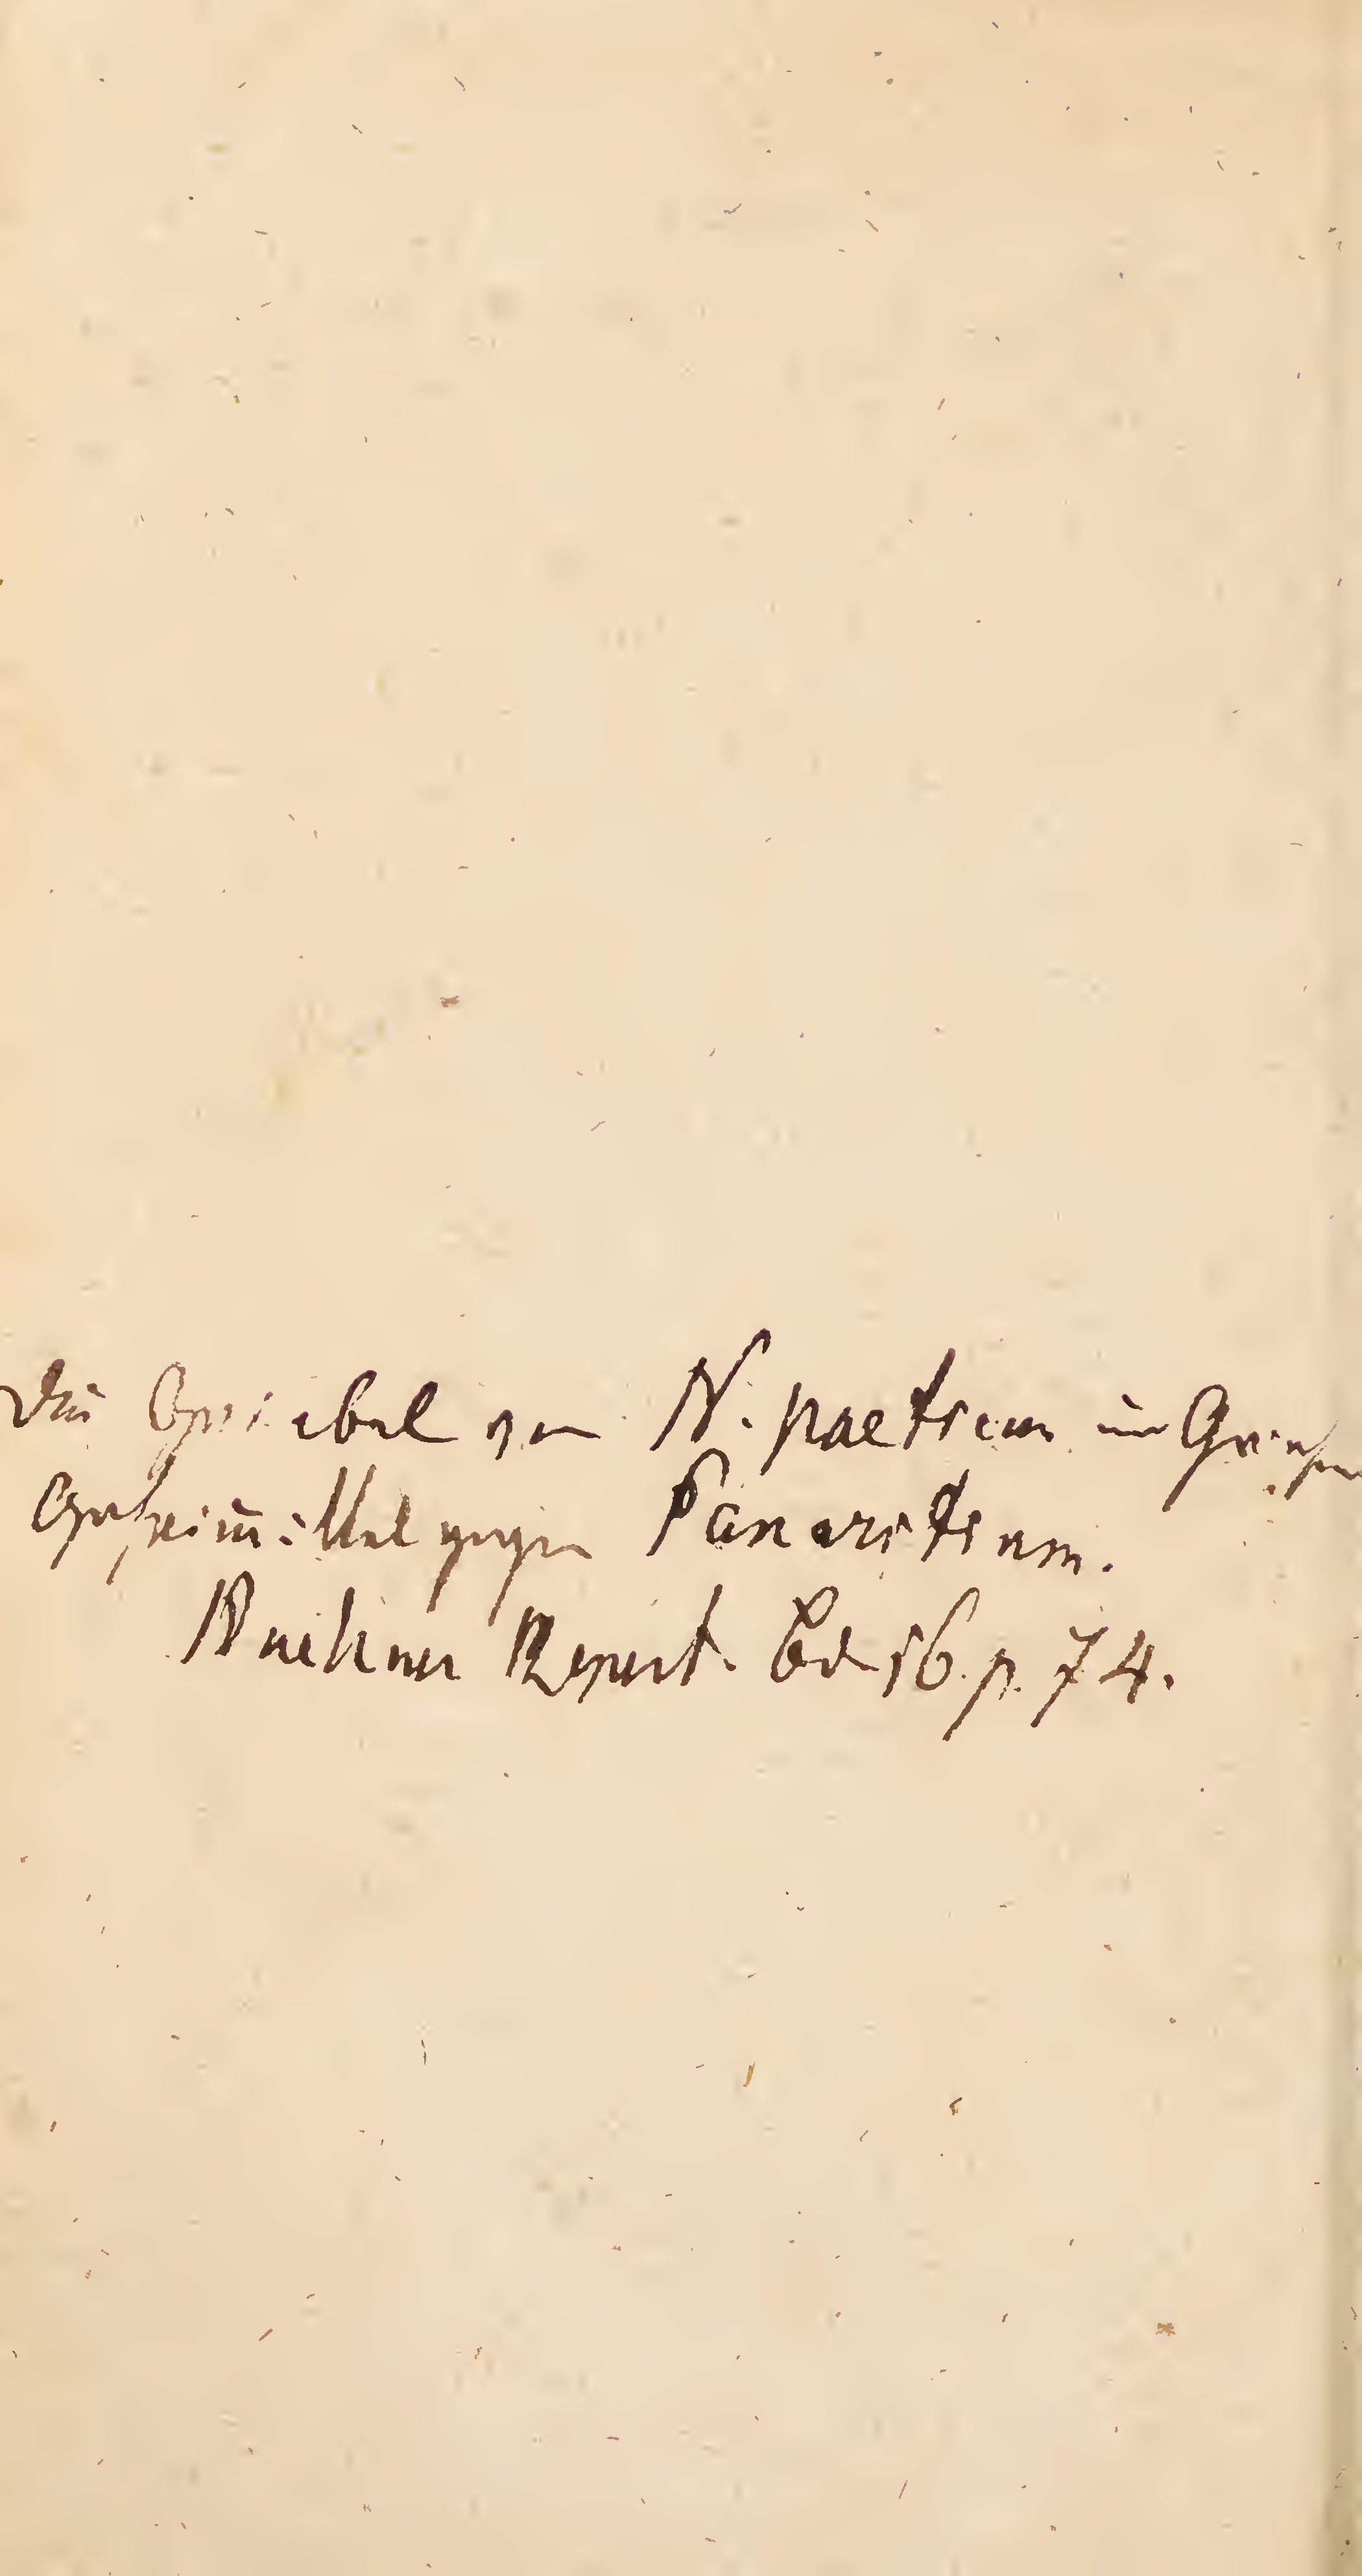 Die Zwiebel von N. poeticus im
Geheimmittel gegen Panaritium.
Buchner Repert. Bd 16. p. 74.